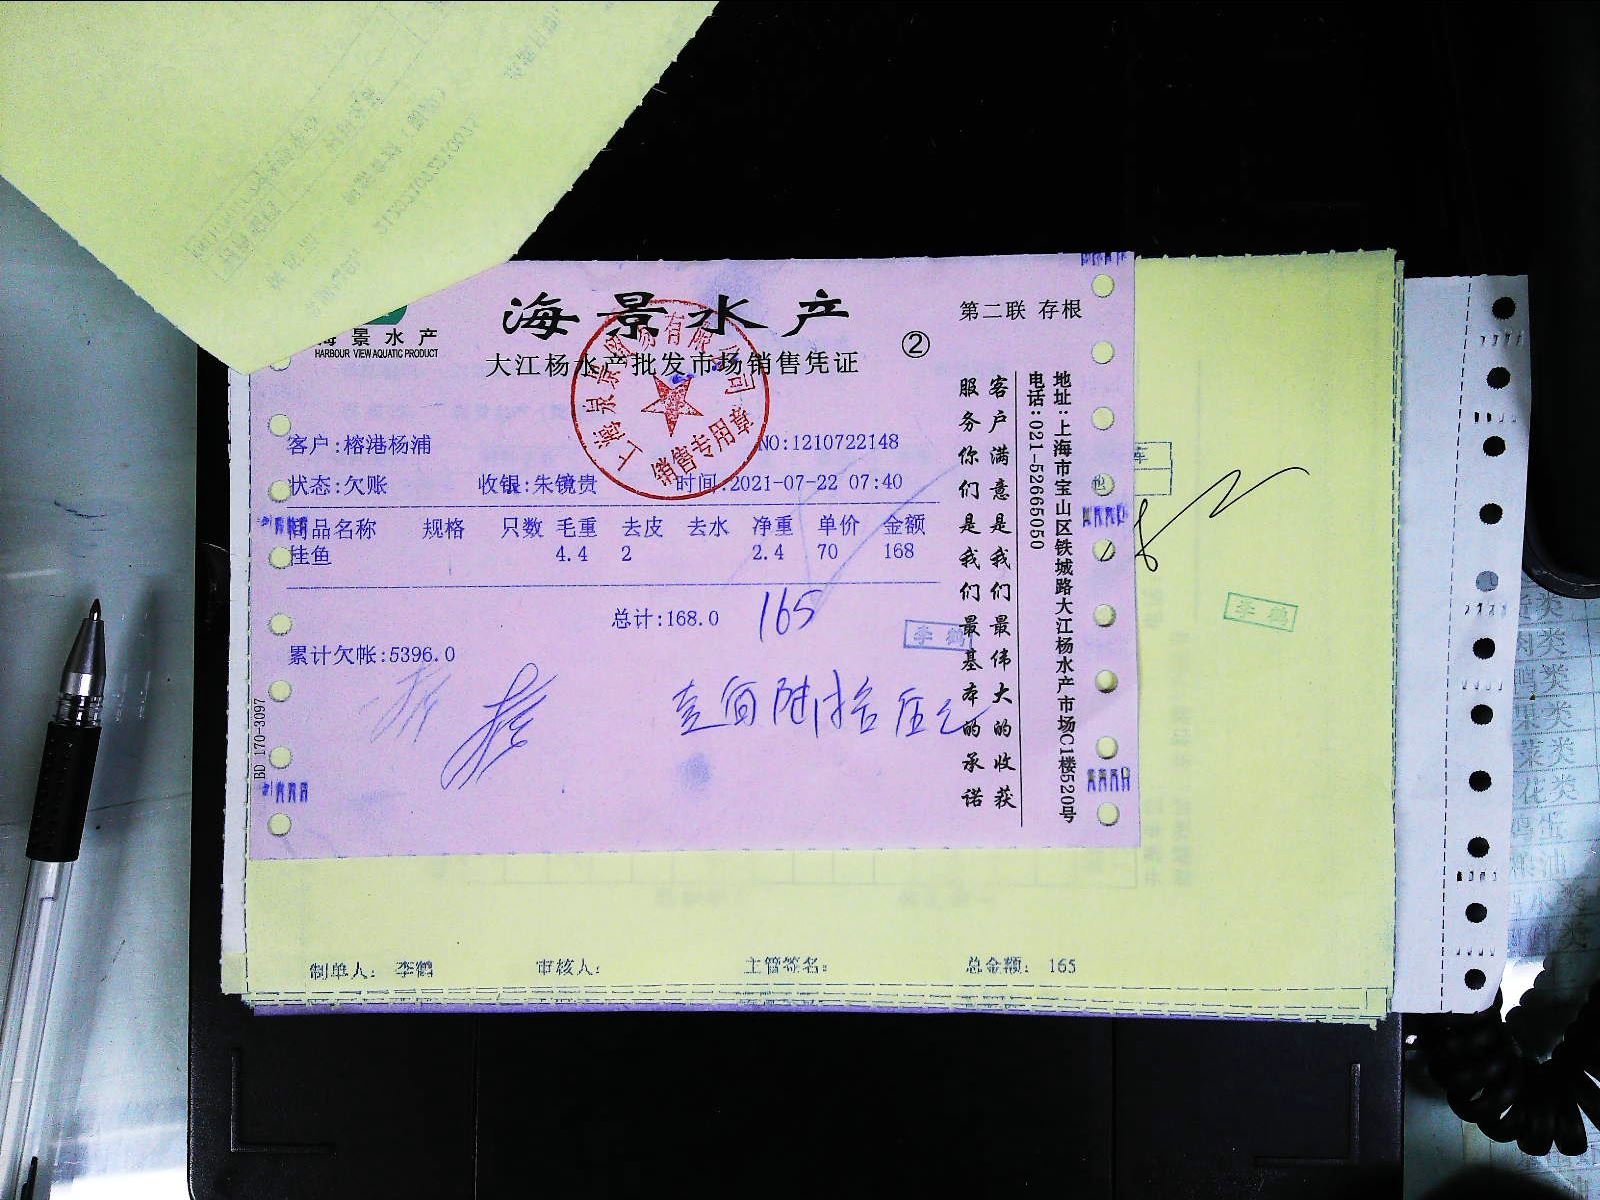 海景水产
第二联 存根
景水产
HARBOUR VIEW AQUATIC PRODUCT
大江杨水产批发市场销售凭证
②
销售专用章
客户:榕港杨浦
NO:1210722148
状态:欠账 收银:朱镜贵 时间:2021-07-22 07:40
商品名称 规格 只数 毛重 去皮 去水 净重 单价 金额
桂鱼 4.4 2 2.4 70 168
总计:168.0 165
李鹤
累计欠帐:5396.0
壹佰陆拾伍元
客户满意是我们最伟大的收获
服务你们是我们最基本的承诺
地址:上海市宝山区铁城路大江杨水产市场C1楼520号
电话:021-52665050
BD 170-3097
李鹤
制单人: 李鹤 审核人: 主管签名: 总金额: 165